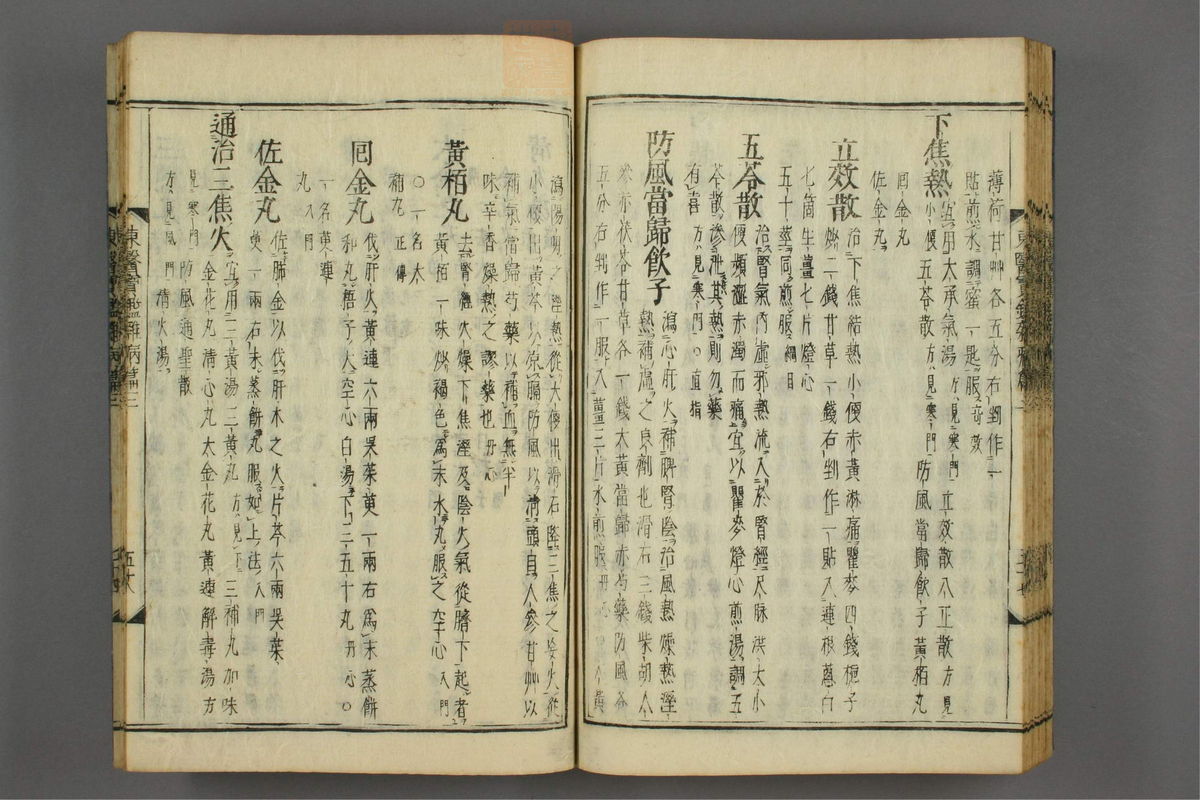 薄荷甘艸各五分右剉作一
貼煎水調蜜一匙服奇效
下焦熱宜用大承氣湯方見寒門立效散八正散方見
小便五苓散方見寒門防風當歸飮子黃栢丸
回金丸
佐金丸
立效散治下焦結熱小便赤黃淋痛瞿麥四錢梔子
炒二錢甘草一錢右剉作一貼入連根葱白
七箇生薑七片燈心
五十莖同煎服綱目
五苓散治腎氣內虛邪熱流入於腎經尺脉洪大小
便頻澁赤濁而痛宜以瞿麥燈心煎湯調五
苓散滲泄其熱則勿藥
有喜方見寒門○直指
防風當歸飮子瀉心肝火補脾腎陰治風熱燥熱溼
熱補虛之良劑也滑石三錢柴胡人參
黃芩甘草各一錢大黃當歸赤芍藥防風各
五分右剉作一服入薑三片水煎服
瀉陽明之溼熱從大便出滑石降三焦之妄火從
小便出黃芩以凉膈防風以淸頭目人參甘艸以
補氣當歸芍藥以補血無半
味辛香燥熱之謬藥也丹心
黃栢丸去腎經火燥下焦溼及陰火氣從臍下起者
黃栢一味炒褐色爲末水丸服之空心入門
○一名大
補丸正傳
回金丸伐肝火黃連六兩吳茱萸一兩右爲末蒸餠
和丸梧子大空心白湯下三五十丸丹心○
一名萸連
丸入門
佐金丸佐肺金以伐肝木之火片芩六兩吳茱
萸一兩右末蒸餠丸服如上法入門
通治三焦火宜用三黃湯三黃丸方見下三補丸加味
金花丸淸心丸大金花丸黃連解毒湯方
見寒門防風通聖散
方見風門淸火湯
東醫寶鑑雜病篇三